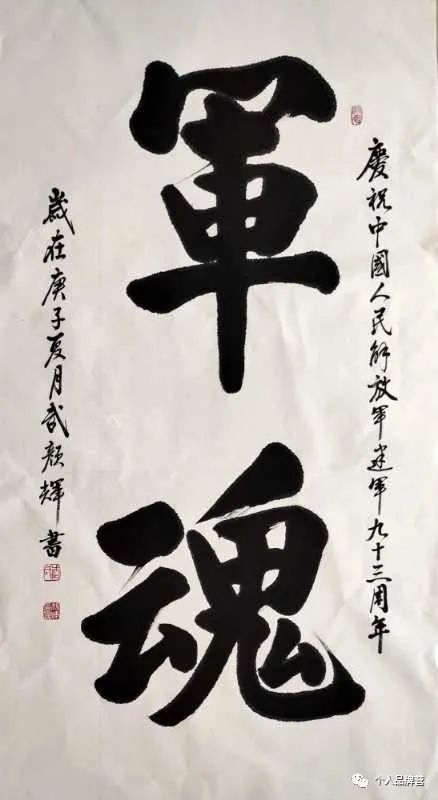 慶祝中國人民解放軍建軍九十三周年
軍魂
歲在庚子夏月武顏輝書
个人品牌营